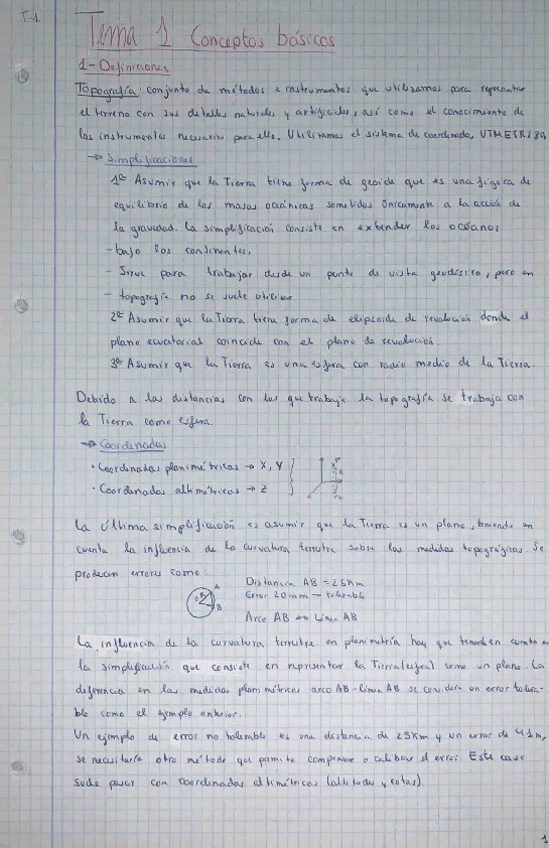 T-1
Tema 1 Conceptos básicos
1- Definiciones
Topografía: conjunto de métodos e instrumentos que utilizamos para representar
el terreno con sus detalles naturales y artificiales, así como el conocimiento de
los instrumentos necesarios para ello. Utilizamos el sistema de coordenadas, UTM ETRS89
→ Simplificaciones
1º Asumir que la Tierra tiene forma de geoide que es una figura de
equilibrio de las masas oceánicas sometidas únicamente a la acción de
la gravedad. La simplificación consiste en extender los océanos
- bajo los continentes.
- Sirve para trabajar desde un punto de vista geodésico, pero en
- topografía no se suele utilizar
2º Asumir que la Tierra tiene forma de elipsoide de revolución donde el
plano ecuatorial coincide con el plano de revolución.
3º Asumir que la Tierra es una esfera con radio medio de la Tierra.
Debido a las distancias con las que trabaja la topografía se trabaja con
la Tierra como esfera.
→ Coordenadas
· Coordenadas planimétricas → X, Y
· Coordenadas altimétricas → Z
La última simplificación es asumir que la Tierra es un plano, teniendo en
cuenta la influencia de la curvatura terrestre sobre las medidas topográficas. Se
producen errores como:
A
B
Distancia AB = 25Km
Error 20mm → tolerable
Arco AB ↔ Línea AB
La influencia de la curvatura terrestre en planimetría hay que tenerla en cuenta en
la simplificación que consiste en representar la Tierra (esfera) como un plano. La
diferencia en las medidas planimétricas arco AB-línea AB se considera un error tolera-
ble como el ejemplo anterior.
Un ejemplo de error no tolerable es una distancia de 25Km y un error de 41m,
se necesitaría otro método que permita compensar o calibrar el error. Este caso
suele pasar con coordenadas altimétricas (altitudes y cotas).
1